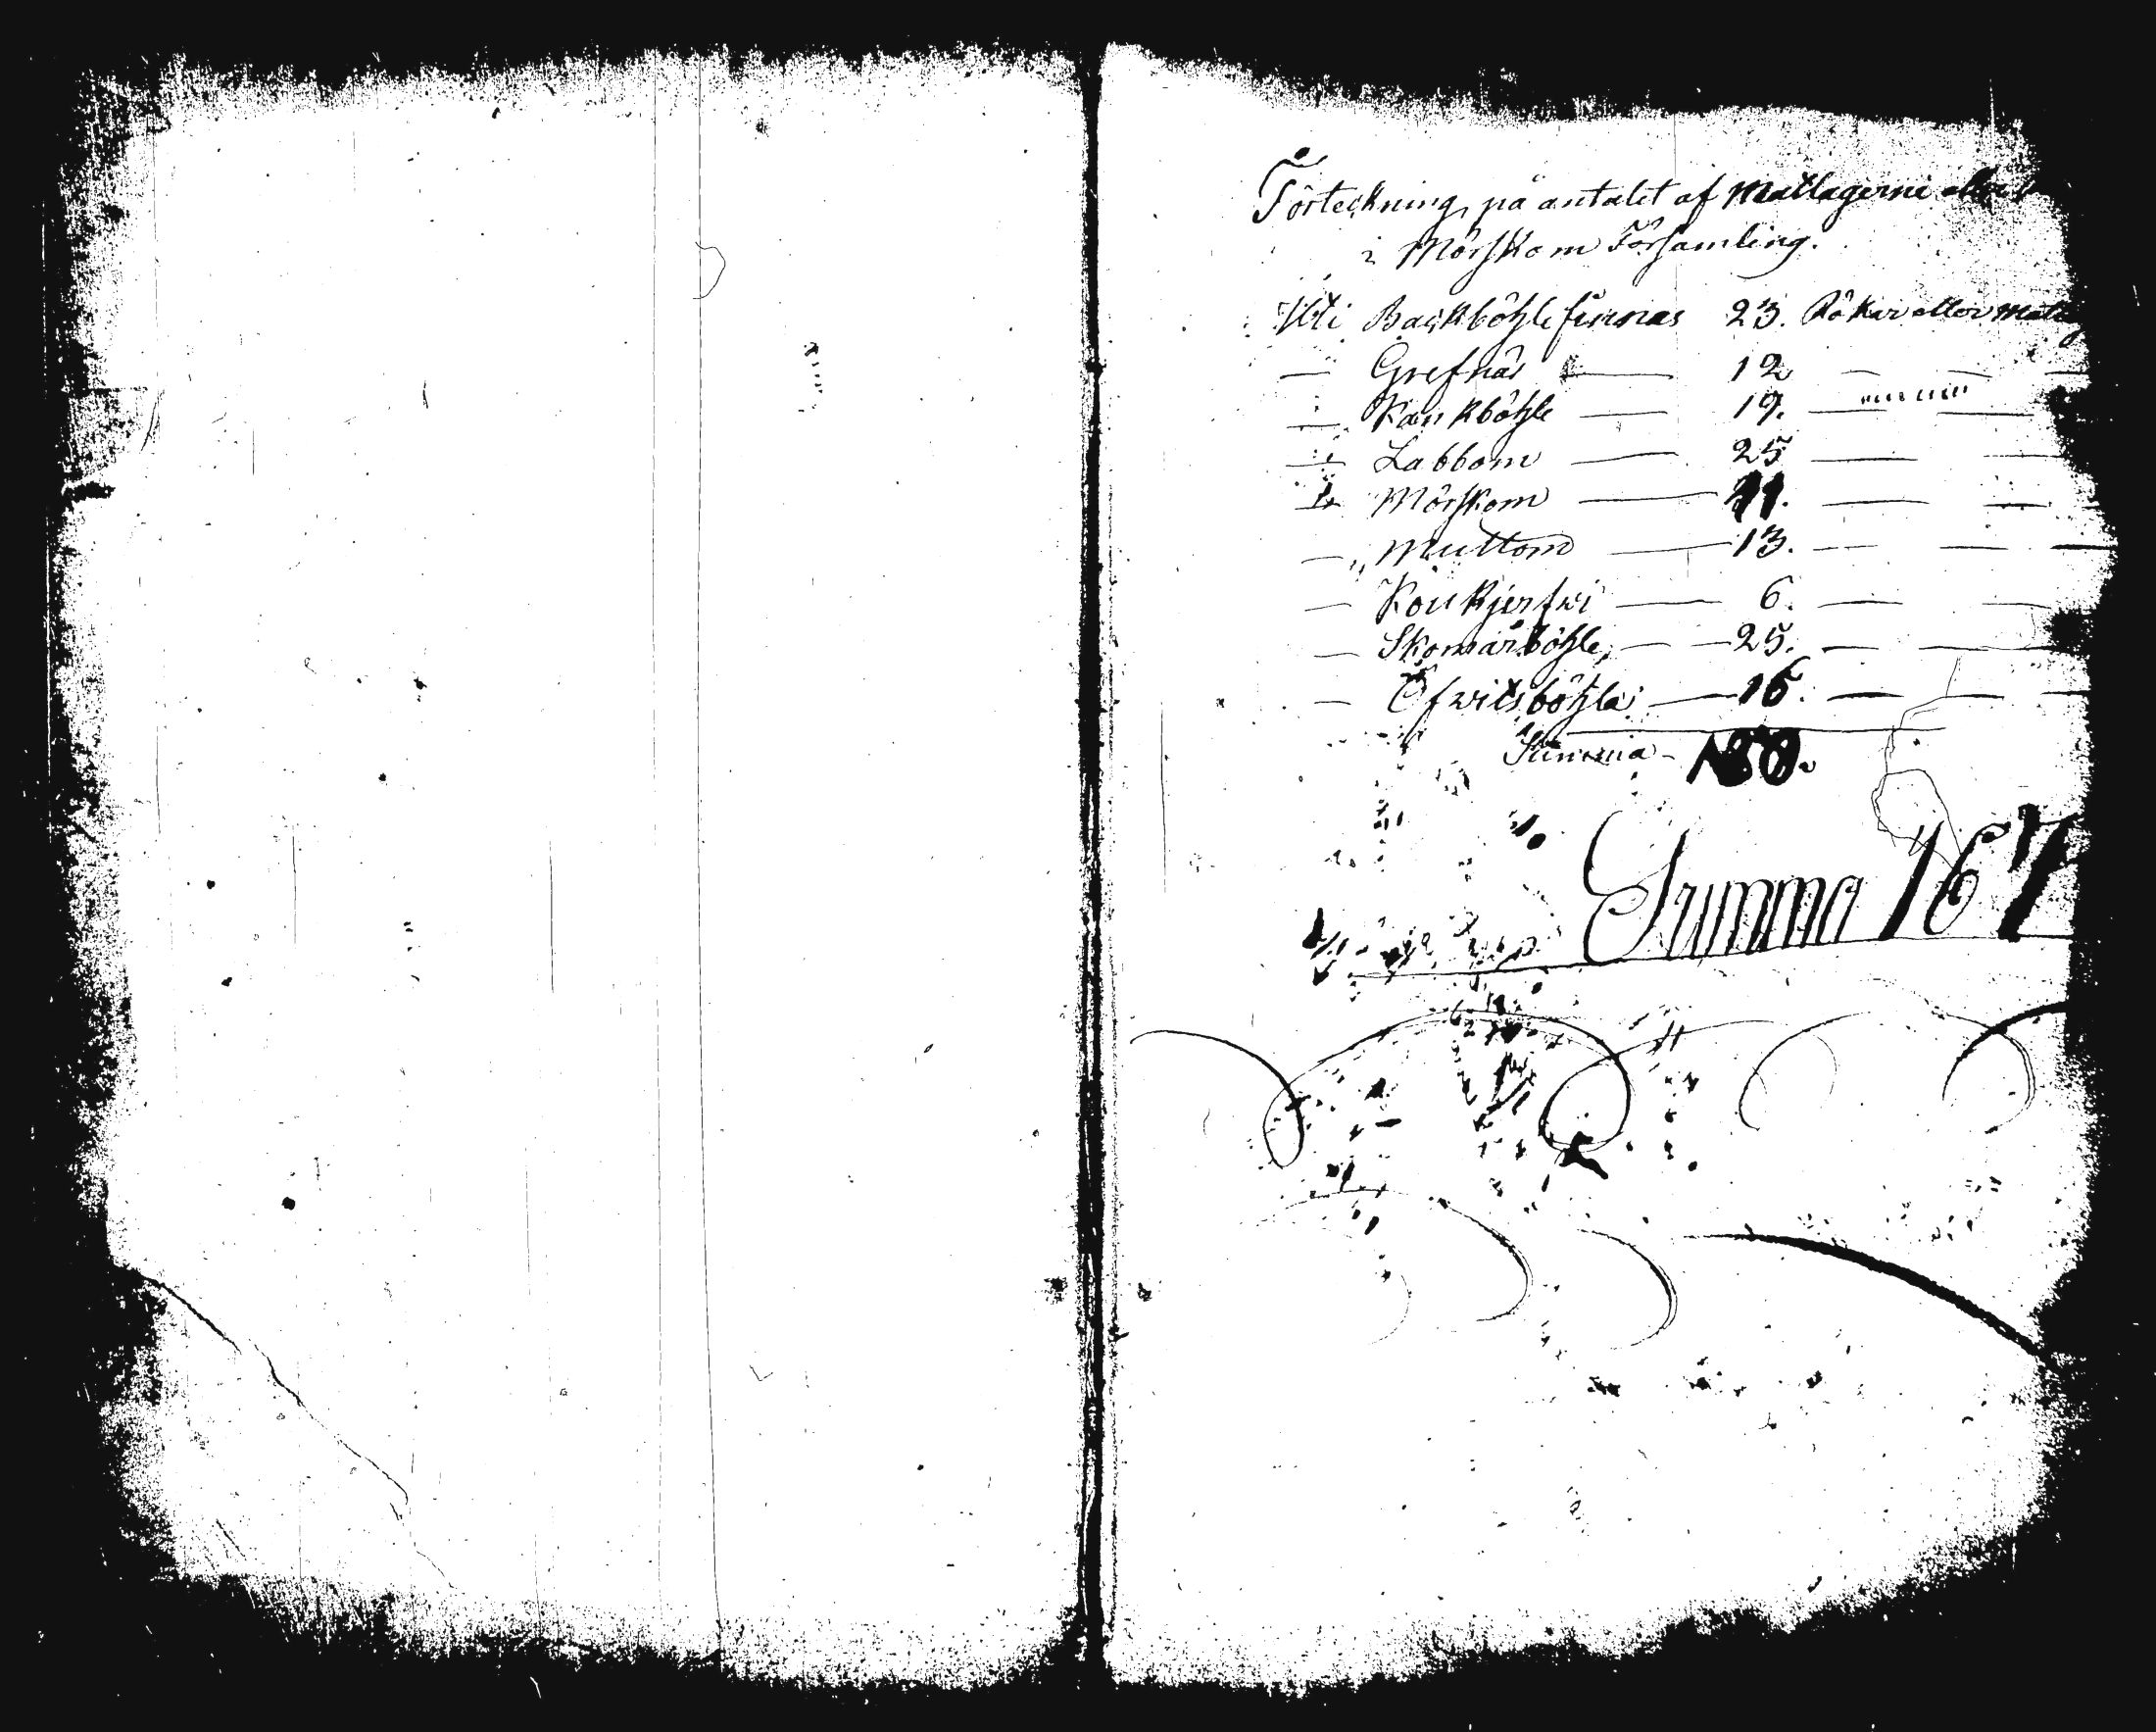 Förteckning på antalet af Matlagerne eller
i Mörskom Församling.
Uti Backböhle finnas 23. Rökar eller Matlag
— Grefnäs — 12 — — —
— Kankböhle — 19. — —
— Labbom — 25 — —
— Mörskom — — —
— Muttom — 13. — — —
— Koukjerfwi — 6. — —
— Skomarböhle, — — 25. — —
— Öfwitsböhle — 16. — — —
Summa -
Summa 167